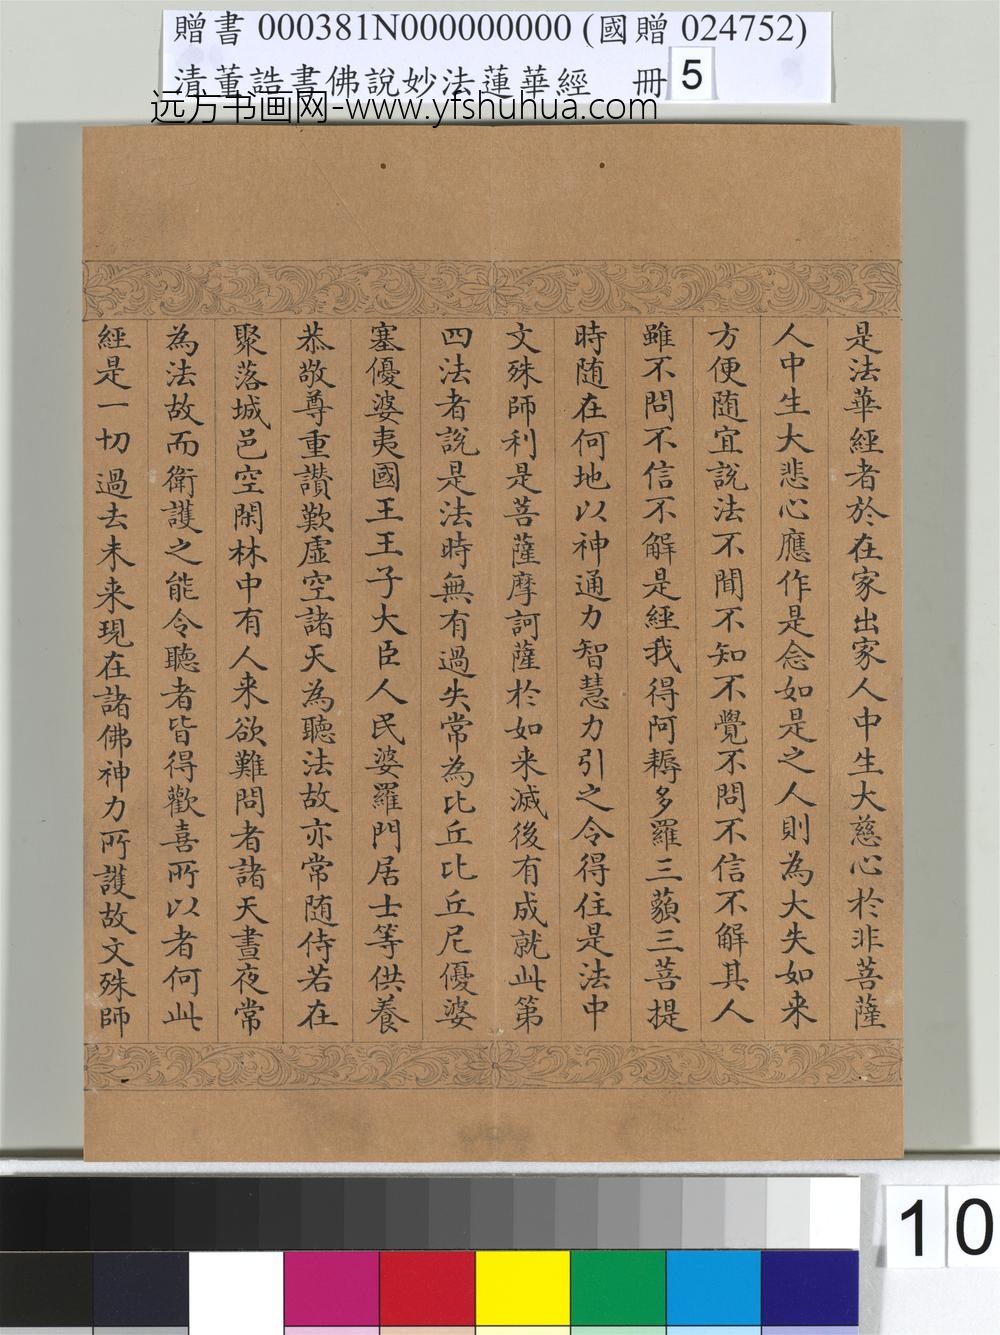 贈書 000381N000000000 (國贈 024752)
清董誥書佛說妙法蓮華經 冊 5
远方书画网-www.yfshuhua.com
是法華經者於在家出家人中生大慈心於非菩薩
人中生大悲心應作是念如是之人則為大失如来
方便随宜説法不聞不知不覺不問不信不解其人
雖不問不信不解是經我得阿耨多羅三藐三菩提
時随在何地以神通力智慧力引之令得住是法中
文殊師利是菩薩摩訶薩於如来滅後有成就此第
四法者説是法時無有過失常為比丘比丘尼優婆
塞優婆夷國王王子大臣人民婆羅門居士等供養
恭敬尊重讃歎虚空諸天為聽法故亦常随侍若在
聚落城邑空閑林中有人来欲難問者諸天晝夜常
為法故而衛護之能令聽者皆得歡喜所以者何此
經是一切過去未来現在諸佛神力所護故文殊師
10